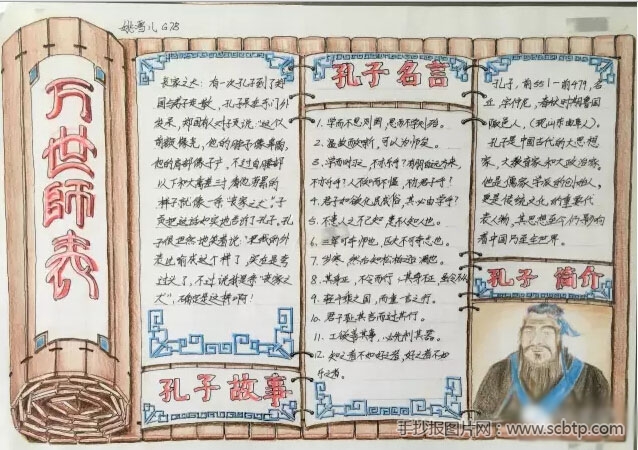 姚雪儿 G7B
万世師表
丧家之犬：有一次孔子到了郑
国与弟子走散，孔子呆在东门外
发呆，郑国有人对子贡说："这个人
前额像尧，他的脖子像皋陶，
他的肩部像子产，不过自腰部
以下和大禹差三寸，看他劳累的
样子就像一条"丧家之犬。"子
贡把这话如实地告诉了孔子。孔
子很坦然地笑着说："把我的外
表也
过火了，不过说我是条"丧家之
犬"，确定是这样啊！
孔子故事
孔子名言
1. 学而不思则罔，思而不学则殆。
2. 温故而知新，可以为师矣。
3. 学而时习之，不亦乐乎？有朋自远方来，
不亦乐乎？人不知而不愠，不亦君子乎！
4. 君子如欲化民成俗，其必由学乎？
5. 不患人之不己知，患不知人也。
6. 三军可夺帅也，匹夫不可夺志也。
7. 岁寒，然后知松柏之后凋也。
8. 其身正，不令而行，其身不正，虽令不从
9. 
10. 君子耻其言而过其行。
11. 工欲善其事，必先利其器。
12. 知之者不如好之者，好之者不如
乐之者。
孔子，前551－前479，名
丘，字仲尼，春秋时期鲁国
陬邑人，（现山东曲阜人）。
孔子是中国古代的大思想
家、大教育家和大政治家。
他是儒家学派的创始人，
更是传统文化的重要代
表人物，其思想至今仍影响
着中国乃至全世界。
孔子 简介
手抄报图片网：www.scbtp.com